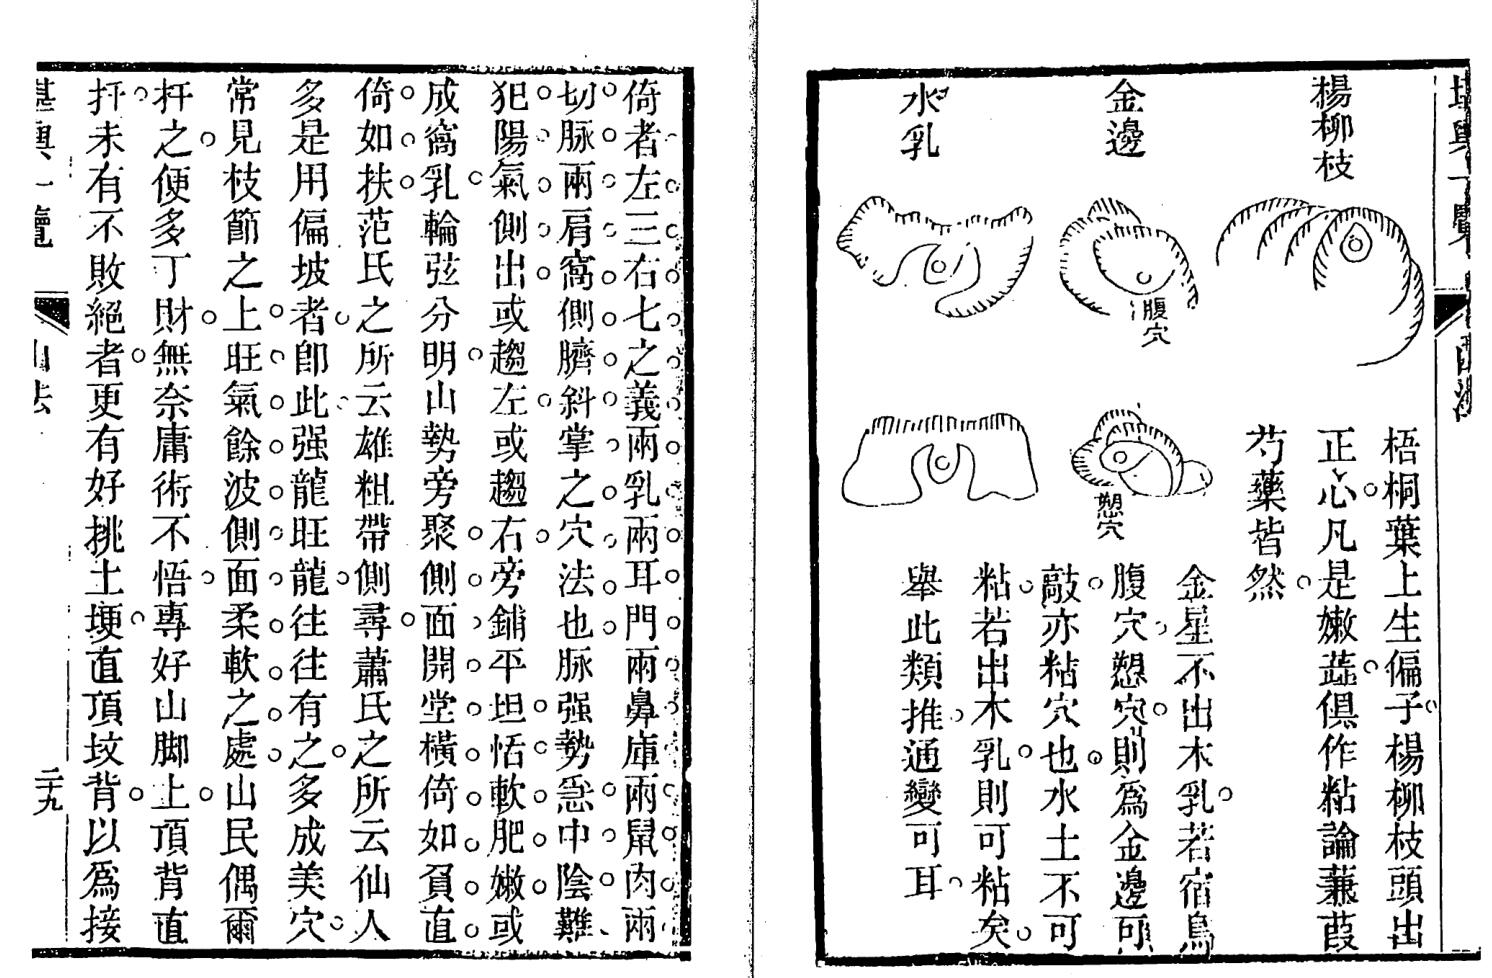 堪輿一覽
山法
楊柳枝
金邊
水乳
腹穴
憩穴
梧桐葉上生偏子楊柳枝頭出
正心凡是嫩蕋俱作粘論蒹葭
芍藥皆然
金星不出木乳若宿鳥
腹穴憩穴則爲金邊可
敲亦粘穴也水土不可
粘若出木乳則可粘矣
舉此類推通變可耳
倚者左三右七之義兩乳兩耳門兩鼻庫兩鼠肉兩
切脉兩肩窩側臍斜掌之穴法也脉强勢急中陰難
犯陽氣側出或趨左或趨右旁鋪平坦恬軟肥嫩或
成窩乳輪弦分明山勢旁聚側面開堂橫倚如負直
倚如扶范氏之所云雄粗帶側尋蕭氏之所云仙人
多是用偏坡者卽此强龍旺龍往往有之多成美穴
常見枝節之上旺氣餘波側面柔軟之處山民偶爾
扦之便多丁財無奈庸術不悟專好山脚上頂背直
扦未有不敗絕者更有好挑土埂直頂坟背以爲接
堪輿一覽
山法
二十九